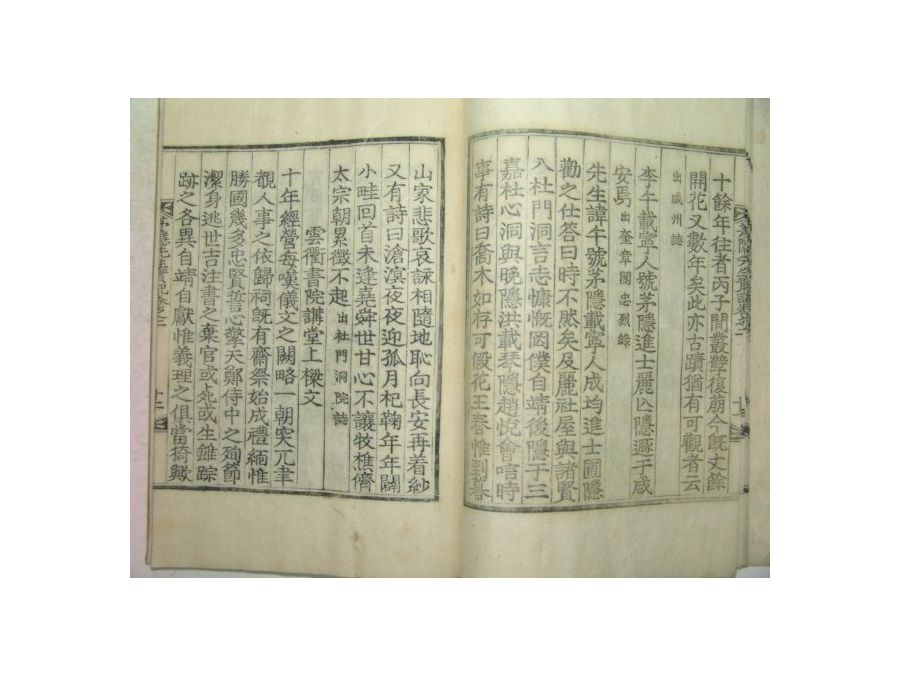 十餘年往者丙子間叢孽復萠今旣丈餘
開花又數年矣此亦古蹟猶有可觀者云
出咸州誌
李午載寧人號茅隱進士麗亾隱遯于咸
安焉 出奎章閣忠烈錄
先生諱午號茅隱載寧人成均進士圃隱
勸之仕答曰時不然矣及麗社屋與諸賢
入杜門洞言志慷慨因僕自靖後隱于三
嘉杜心洞與晚隱洪載琴隱趙悅會唁時
事有詩曰喬木如存可假花王春惟到暮
山家悲歌哀詠相隨地恥向長安再着紗
又有詩曰滄溟夜夜迎孤月杞鞠年年闢
小畦回首未逢堯舜世甘心不讓牧樵儕
太宗朝累徵不起 出杜門洞院誌
雲衢書院講堂上樑文
十年經營每嘆儀文之闕略一朝突兀聿
觀人事之依歸祠旣有齋祭始成禮緬惟
勝國幾多忠賢誓心擎天鄭侍中之殉節
潔身逃世吉注書之棄官或死或生雖踪
跡之各異自靖自獻惟義理之俱當猗歟
十二